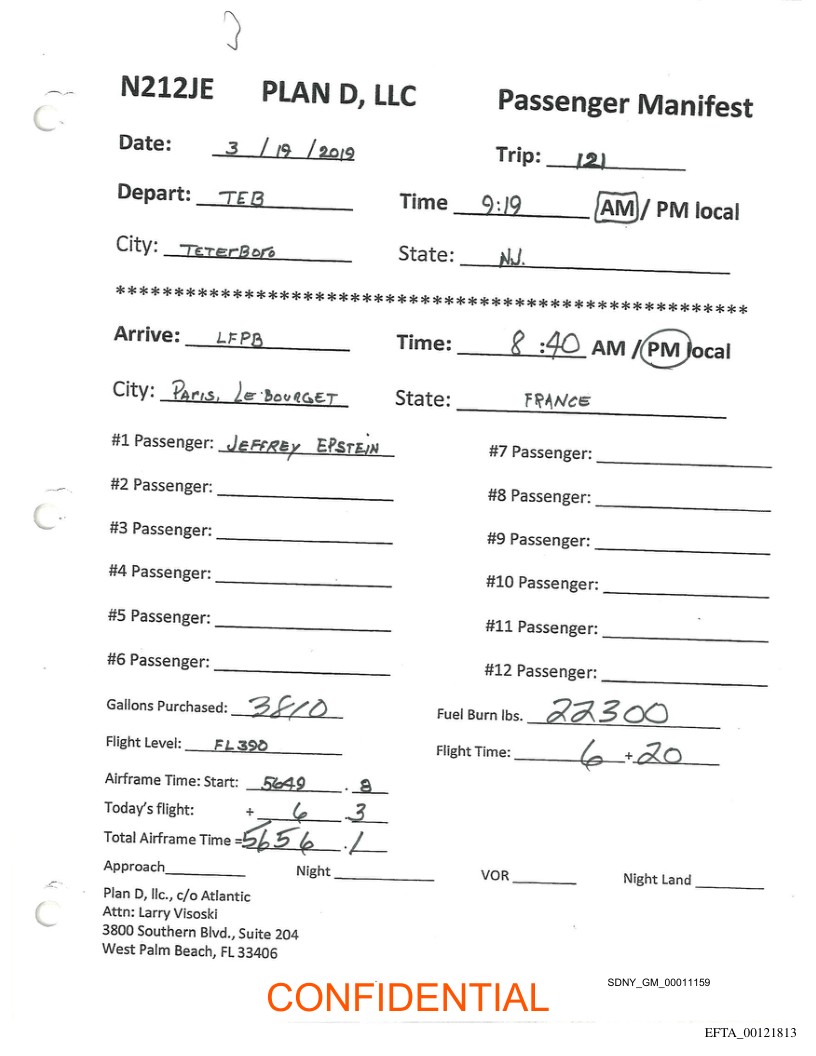 N212JE PLAN D, LLC Passenger Manifest
Date: 3 / 19 / 2019 Trip: 121
Depart: TEB Time 9:19 AM / PM local
City: TETERBORO State: NJ.
******************************************************
Arrive: LFPB Time: 8:40 AM / PM local
City: PARIS, LE BOURGET State: FRANCE
#1 Passenger: JEFFREY EPSTEIN #7 Passenger:
#2 Passenger: #8 Passenger:
#3 Passenger: #9 Passenger:
#4 Passenger: #10 Passenger:
#5 Passenger: #11 Passenger:
#6 Passenger: #12 Passenger:
Gallons Purchased: 3810 Fuel Burn lbs. 22300
Flight Level: FL390 Flight Time: 6 + 20
Airframe Time: Start: 5649 . 8
Today's flight: + 6 . 3
Total Airframe Time = 5656 . 1
Approach Night VOR Night Land
Plan D, llc., c/o Atlantic
Attn: Larry Visoski
3800 Southern Blvd., Suite 204
West Palm Beach, FL 33406
SDNY_GM_00011159
CONFIDENTIAL
EFTA_00121813